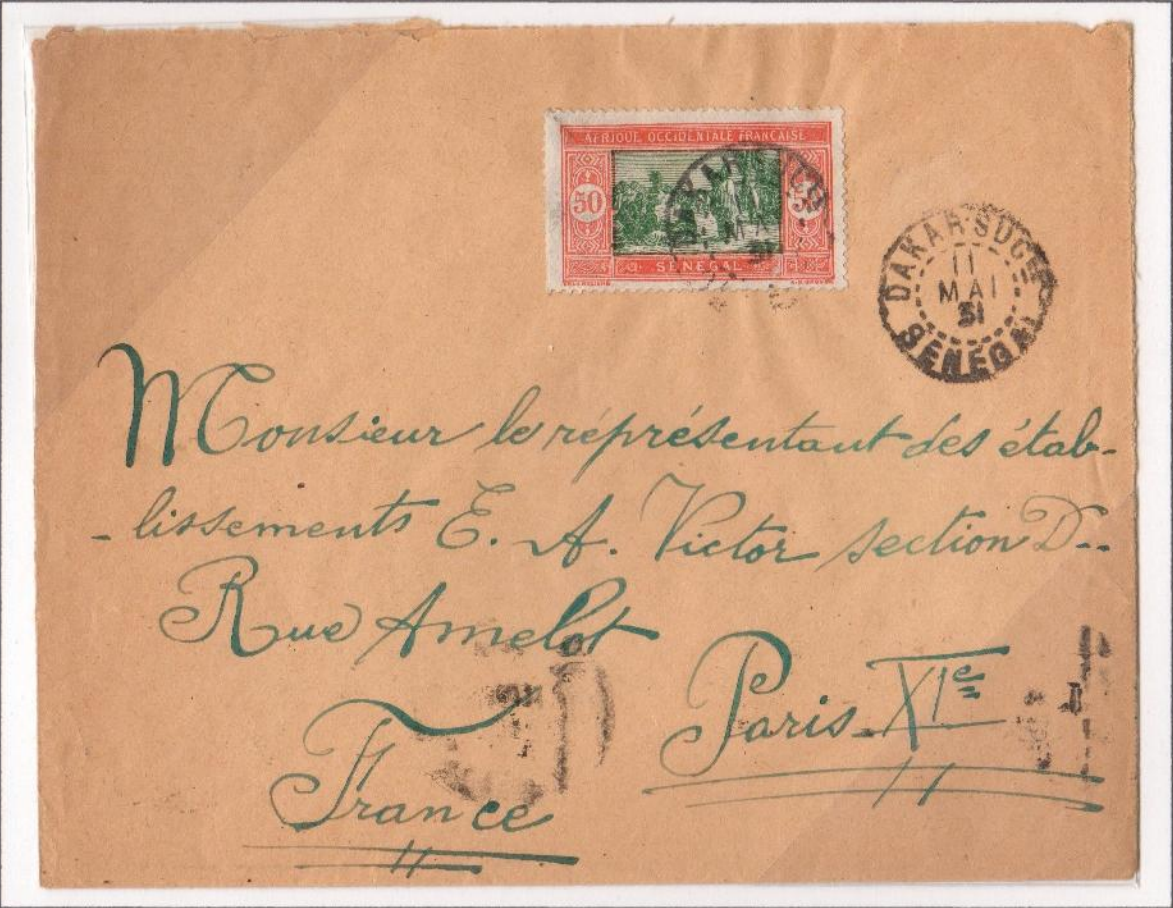 AFRIQUE OCCIDENTALE FRANÇAISE
50
SÉNÉGAL
DAKAR SUCC
11
MAI
31
SÉNÉGAL
Monsieur le réprésentant des étab-
-lissements E. A. Victor section D..
Rue Amelot
Paris XIe
France